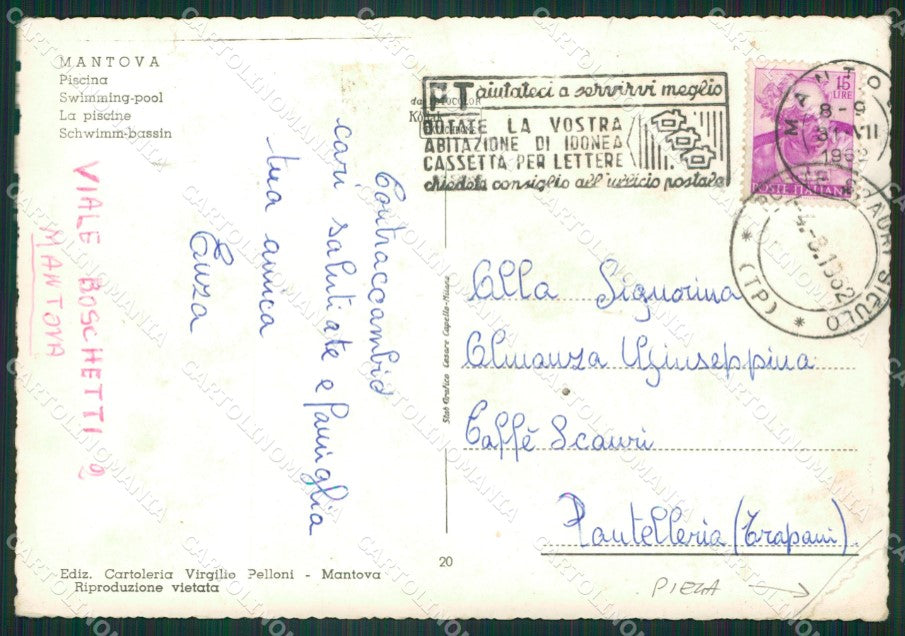 MANTOVA
Piscina
Swimming-pool
La piscine
Schwimm-bassin
VIALE BOSCHETTI 2
MANTOVA
Contraccambio
cari saluti a te e famiglia
tua amica
Enza
PT aiutateci a servirvi meglio
DOTATE LA VOSTRA
ABITAZIONE DI IDONEA
CASSETTA PER LETTERE
chiedete consiglio all'ufficio postale
15
LIRE
POSTE ITALIANE
MANTO
8-9
31 VII
196
SICULO
(TP)
Alla Signorina
Almanza Giuseppina
Caffè Scauri
Pantelleria (Trapani).
Stab Grafico Cesare Capello - Milano
20
Ediz. Cartoleria Virgilio Pelloni - Mantova
Riproduzione vietata
PIEGA
CARTOLINOMANIA